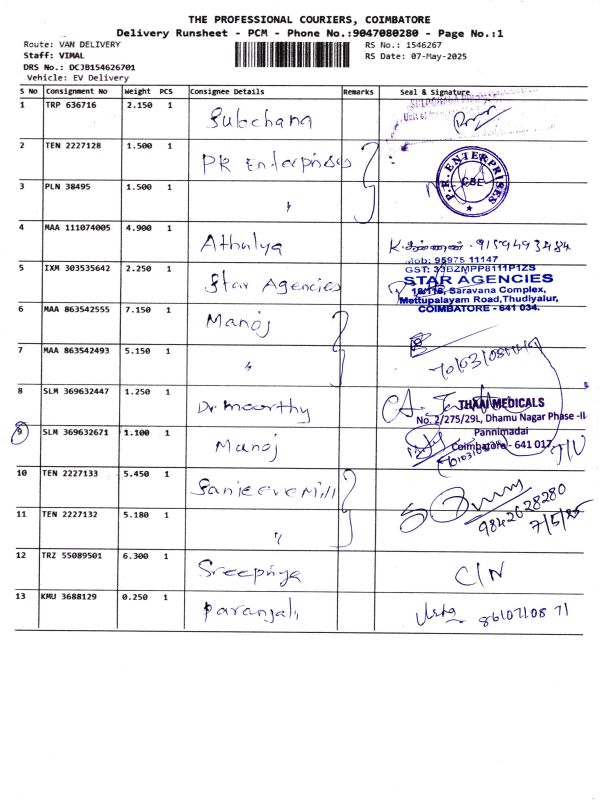 THE PROFESSIONAL COURIERS, COIMBATORE
Delivery Runsheet - PCM - Phone No.:9047080280 - Page No.:1
Route: VAN DELIVERY
RS No.: 1546267
Staff: VIMAL
RS Date: 07-May-2025
DRS No.: DCJB154626701
Vehicle: EV Delivery
S No Consignment No Weight PCS Consignee Details Remarks Seal & Signature
1 TRP 636716 2.150 1 Sulochana
2 TEN 2227128 1.500 1 PR Enterprises
P.R. ENTERPRISES
CBE
3 PLN 38495 1.500 1 "
4 MAA 111074005 4.900 1 Athulya 9159493484
Mob: 95975 11147
GST: 33BZMPP8111P1ZS
5 IXM 303535642 2.250 1 Star Agencies STAR AGENCIES
Saravana Complex,
Mettupalayam Road,Thudiyalur,
COIMBATORE - 641 034.
6 MAA 863542555 7.150 1 Manoj
7 MAA 863542493 5.150 1 "
8 SLM 369632447 1.250 1 Dr moorthy
THAAI MEDICALS
No. 2/275/29L, Dhamu Nagar Phase -II
Pannimadai
Coimbatore - 641 017
9 SLM 369632671 1.100 1 Manoj
10 TEN 2227133 5.450 1 Sanjeeve Mill
9842628280
7/5/25
11 TEN 2227132 5.180 1 "
12 TRZ 55089501 6.300 1 Sreepriya C/N
13 KMU 3688129 0.250 1 Paranjali Usha 8610710871